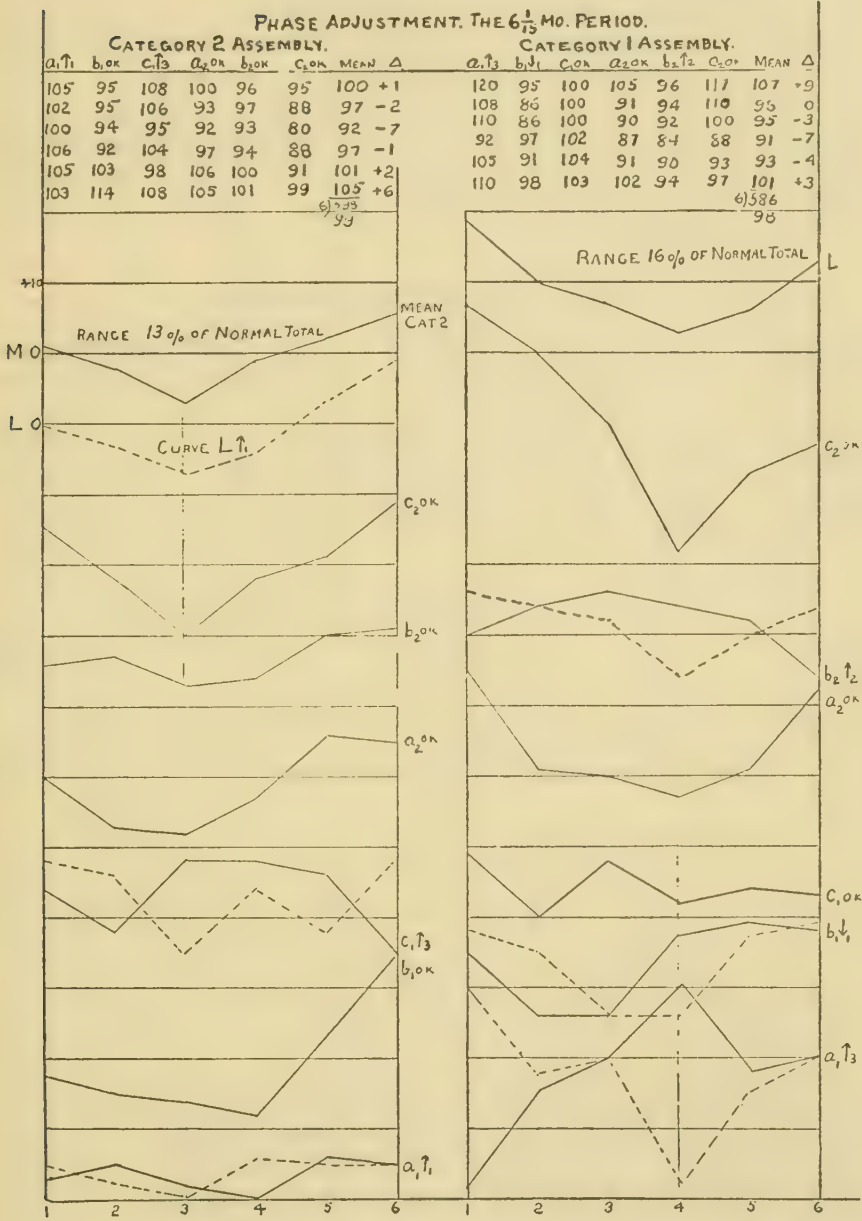 PHASE ADJUSTMENT. THE 6 1/15 MO. PERIOD.
CATEGORY 2 ASSEMBLY.
a₁↑1 b₁OK c₁↑3 a₂OK b₂OK c₂OK MEAN Δ
105 95 108 100 96 95 100 +1
102 95 106 93 97 88 97 -2
100 94 95 92 93 80 92 -7
106 92 104 97 94 88 97 -1
105 103 98 106 100 91 101 +2
103 114 108 105 101 99 105 +6
6)
99
CATEGORY 1 ASSEMBLY.
a₁↑3 b₁↓1 c₁OK a₂OK b₂↑2 c₂OK MEAN Δ
120 95 100 105 96 117 107 +9
108 86 100 91 94 110 0
110 86 100 90 92 100 95 -3
92 97 102 87 84 88 91 -7
105 91 104 91 90 93 93 -4
110 98 103 102 94 97 101 +3
6)586
98
+10
MEAN
CAT 2
RANGE 13% OF NORMAL TOTAL
M 0
L 0
CURVE L↑1
c₂OK
b₂OK
a₂OK
c₁↑3
b₁OK
a₁↑1
1 2 3 4 5 6
RANGE 16% OF NORMAL TOTAL
L
c₂OK
b₂↑2
a₂OK
c₁OK
b₁↓1
a₁↑3
1 2 3 4 5 6